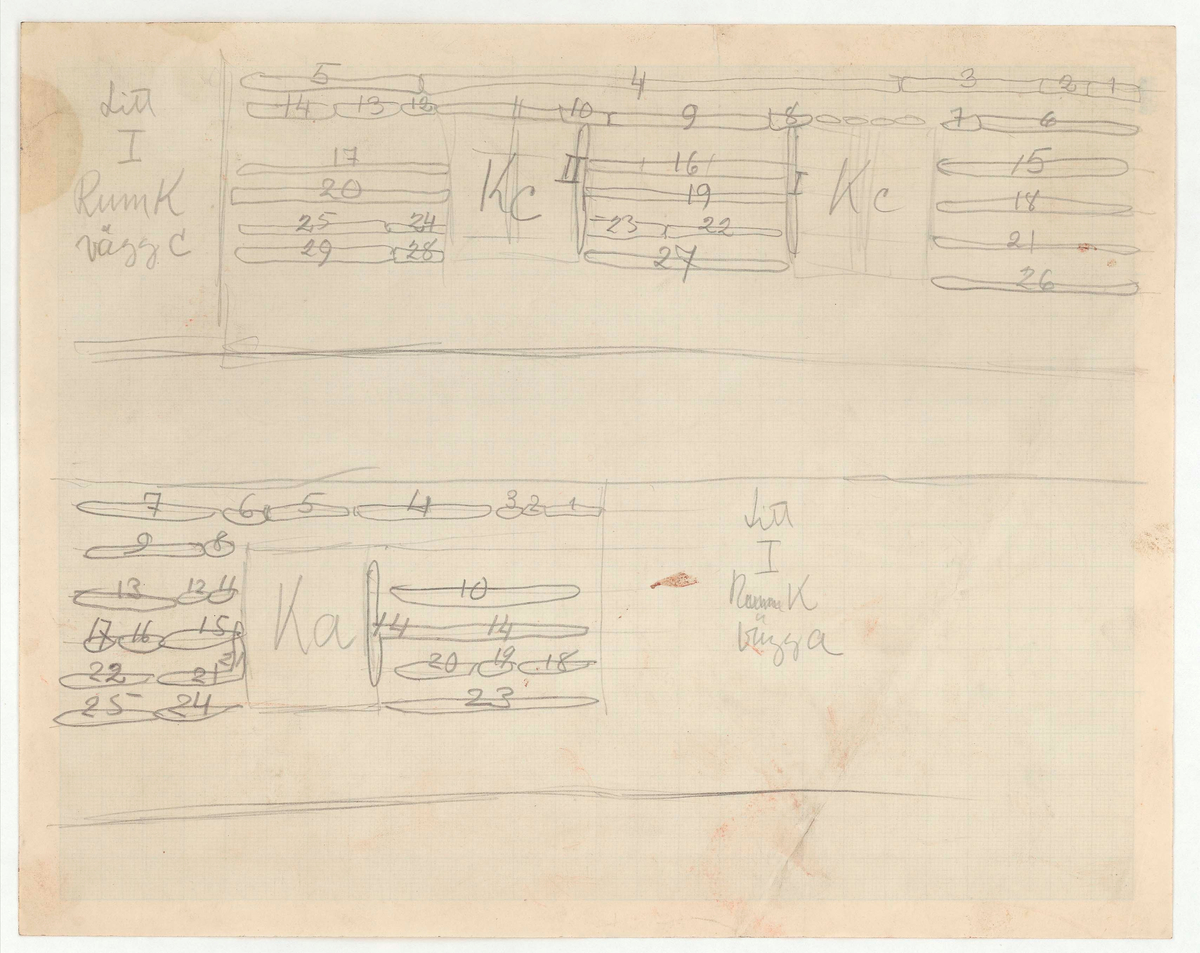 Litt
I
Rum K
vägg C
5 4 3 2 1
14 13 12 11 10 9 8 7 6
17 16 15
20 19 18
Kc II Kc I
25 24 23 22 21
29 28 27 26
7 6 5 4 3 2 1
9 8
13 12 11 10
Ka
17 16 15 14 14
22 21 21 20 19 18
25 24 23
Litt
I
Rum K
vägg a